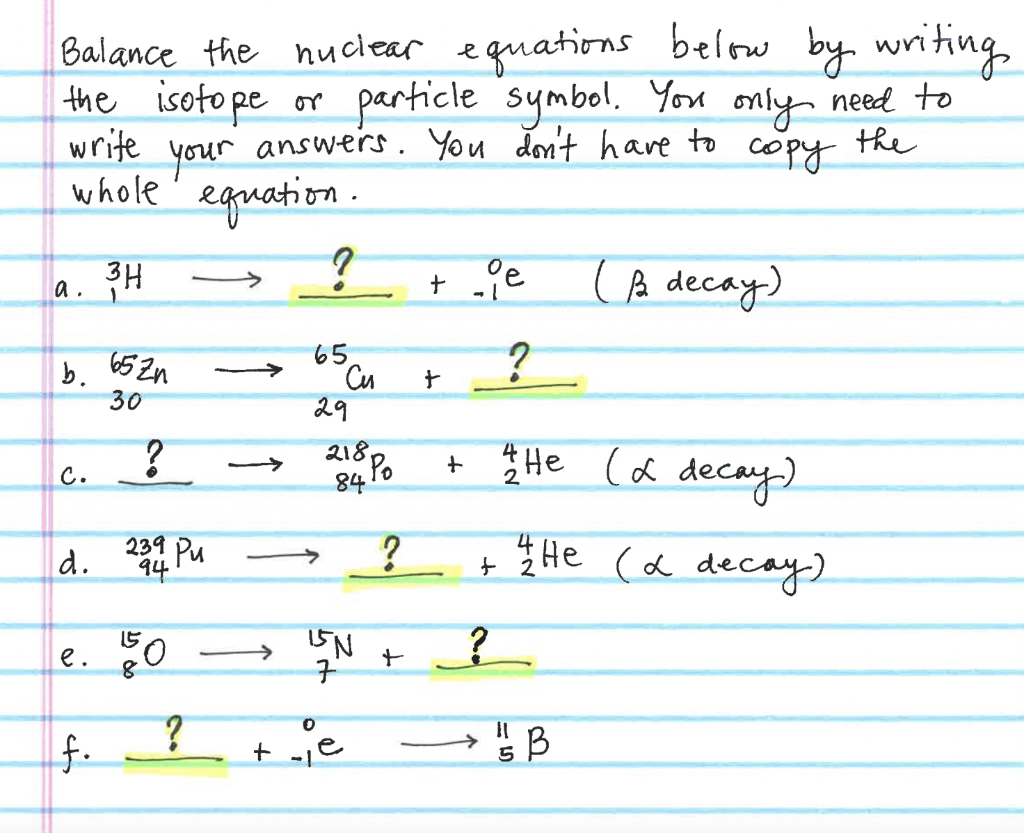 Balance the nuclear equations below by writing
the isotope or particle symbol. You only need to
write your answers. You don't have to copy the
whole equation.
a. ³₁H → ? + ⁰₋₁e (β decay)
b. ⁶⁵₃₀Zn → ⁶⁵₂₉Cu + ?
c. ? → ²¹⁸₈₄Po + ⁴₂He (α decay)
d. ²³⁹₉₄Pu → ? + ⁴₂He (α decay)
e. ¹⁵₈O → ¹⁵₇N + ?
f. ? + ⁰₋₁e → ¹¹₅B